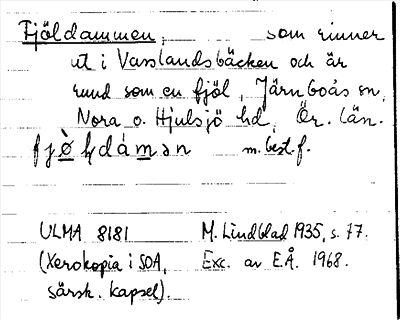 Fjöldammen, som rinner
ut i Vasslandsbäcken och är
rund som en fjöl, Järnboås sn,
Nora o. Hjulsjö hd, Ör. län.
m. best. f.
ULMA 8181 M. Lindblad 1935, s. 77.
(Xerokopia i SOA, Exc. av E.Å. 1968.
särsk. kapsel).